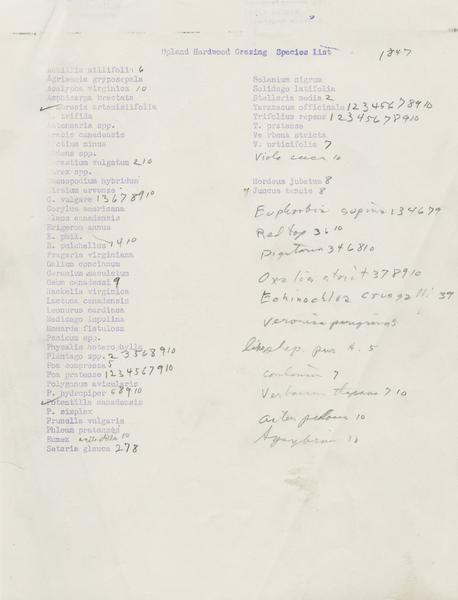 Upland Hardwood Grazing Species List
1847
Achillia millifolia 6
Agrimonia gryposepala
Acalypha virginica 10
Amphicarpa bracteata
Ambrosia artemisiifolia
A. trifida
Antennaria spp.
Arabis canadensis
Arctium minus
Bidens spp.
Cerastium vulgatum 2 10
Carex spp.
Chenopodium hybridum
Cirsium arvense
C. vulgare 1 3 6 7 8 9 10
Corylus americana
Elmus canadensis
Erigeron annus
E. phil.
E. pulchellus 1 4 10
Fragaria virginiana
Galium concinnum
Geranium maculatum
Geum canadensi 9
Hackelia virginica
Lactuca canadensis
Leonurus cardiaca
Medicago lupulina
Monarda fistulosa
Panicum spp.
Physalis heterophylla
Plantago spp. 2 3 5 6 8 9 10
Poa compressa 5
Poa pratense 1 2 3 4 5 6 7 9 10
Polygonum avicularis
P. hydropiper 6 8 9 10
Potentilla canadensis
P. simplex
Prunella vulgaris
Phleum pratensis
Rumex 10
Setaria glauca 2 7 8
Solanium nigrum
Solidago latifolia
Stellaria media 2
Taraxacum officinale 1 2 3 4 5 6 7 8 9 10
Trifolium repens 1 2 3 4 5 6 7 8 9 10
T. pratense
Verbena stricta
V. urticifolia 7
Viola cucu 10
Hordeum jubatum 8
Juncus tenuis 8
Euphorbia supina 1 3 4 6 7 9
Red top 3 6 10
Digitaria 3 4 6 8 10
Oxalis strict 3 7 8 9 10
Echinochloa crusgalli 3 9
Veronica peregrina 5
5
7
Verbascum thapsus 7 10
aster 10
10